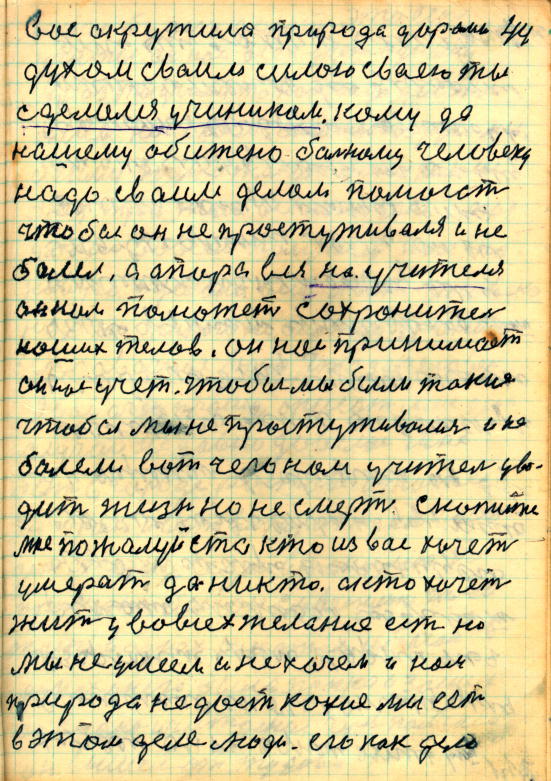 вас окружила природа дарами 44
духом сваим силою сваею ты
сделался учиником. кому да
нашему обижено болному человеку
надо сваим делом помогат
чтобы он не простуживался и не
болел, а апора вся на учителя
он нам поможет сохронител
наших телов. он нас принимает
он нас учет. чтобы мы были такие
чтобы мы не простуживалися и не
болели вот чего нам учител уво-
дит жизн но не смерт. скопите
мне пожалуйста кто из вас хочет
умерат да никто. а кто хочет
жит у вовсех желание ест но
мы не умеем и не хочем и нам
природа не дает какие мы ест
в этом деле люди. его как дело